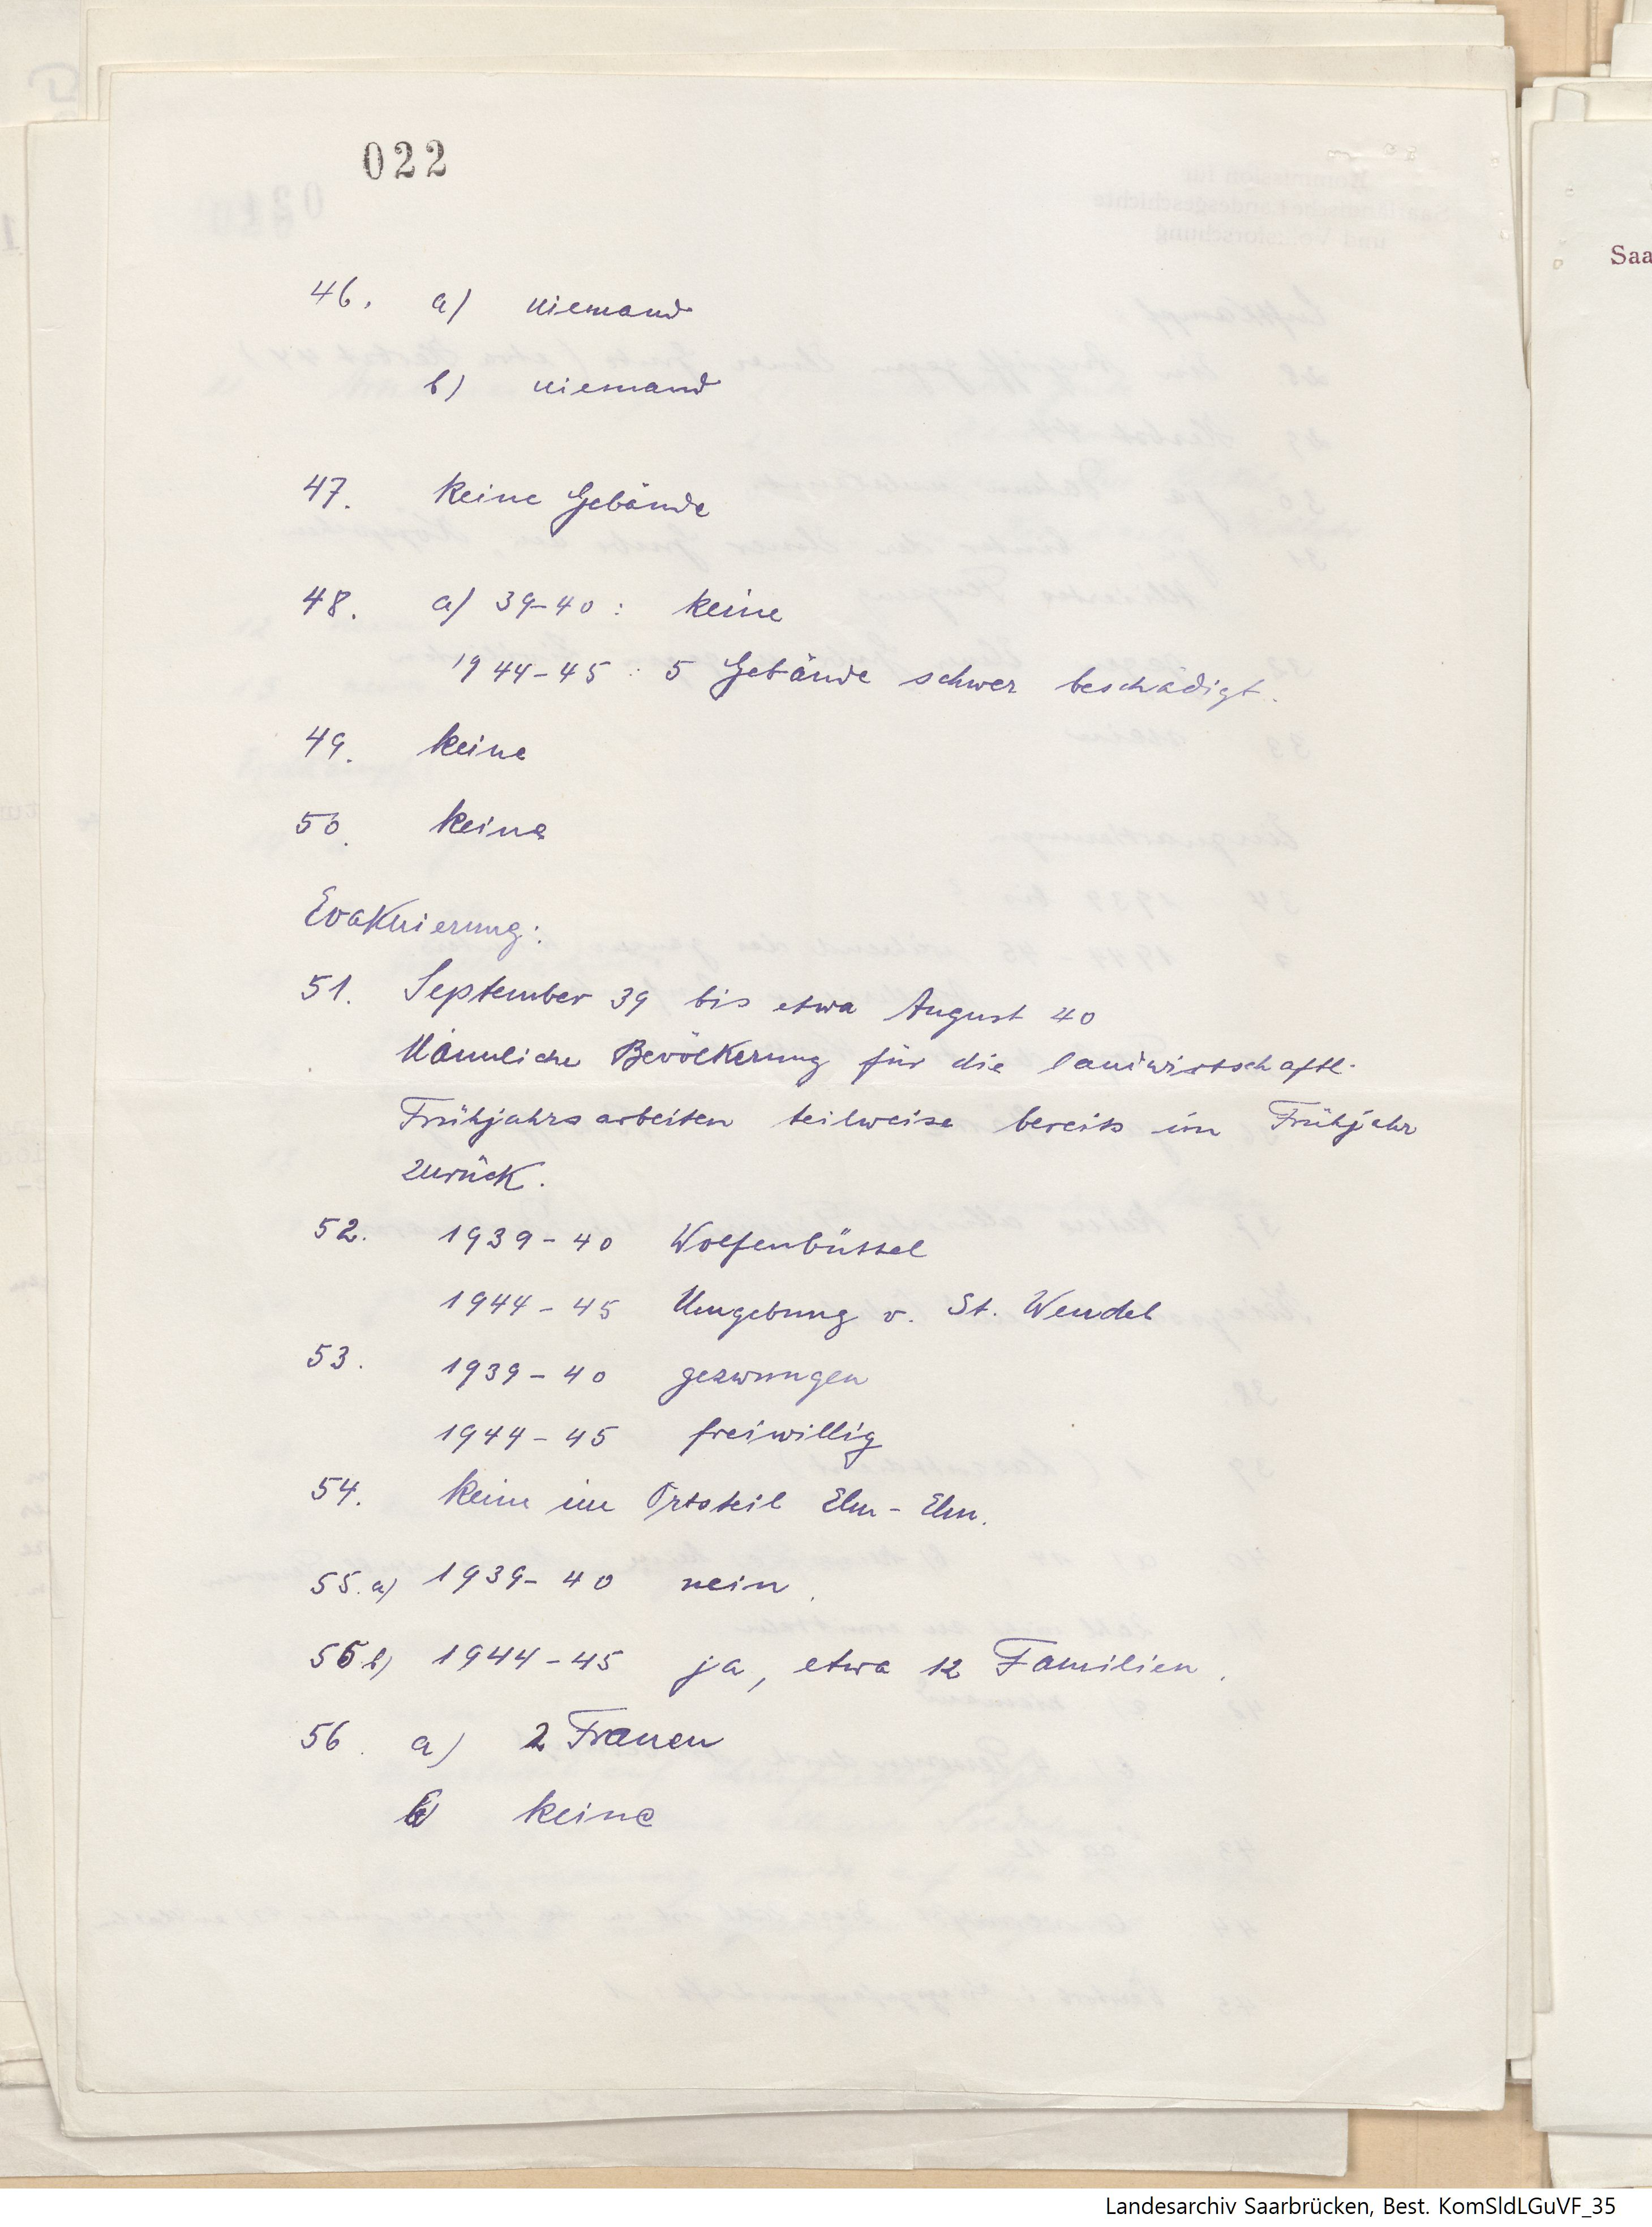 022
46. a) niemand
b) niemand
47. keine Gebäude
48. a) 39-40: keine
1944-45: 5 Gebäude schwer beschädigt.
49. keine
50. keine
Evakuierung:
51. September 39 bis etwa August 40
Männliche Bevölkerung für die landwirtschaftl.
Frühjahrsarbeiten teilweise bereits im Frühjahr
zurück.
52. 1939-40 Wolfenbüttel
1944-45 Umgebung v. St. Wendel
53. 1939-40 gezwungen
1944-45 freiwillig
54. keine im Ortsteil Elm-Elm.
55. a) 1939-40 nein.
55 b) 1944-45 ja, etwa 12 Familien.
56. a) 2 Frauen
b) keine
Saa
Landesarchiv Saarbrücken, Best. KomSldLGuVF_35